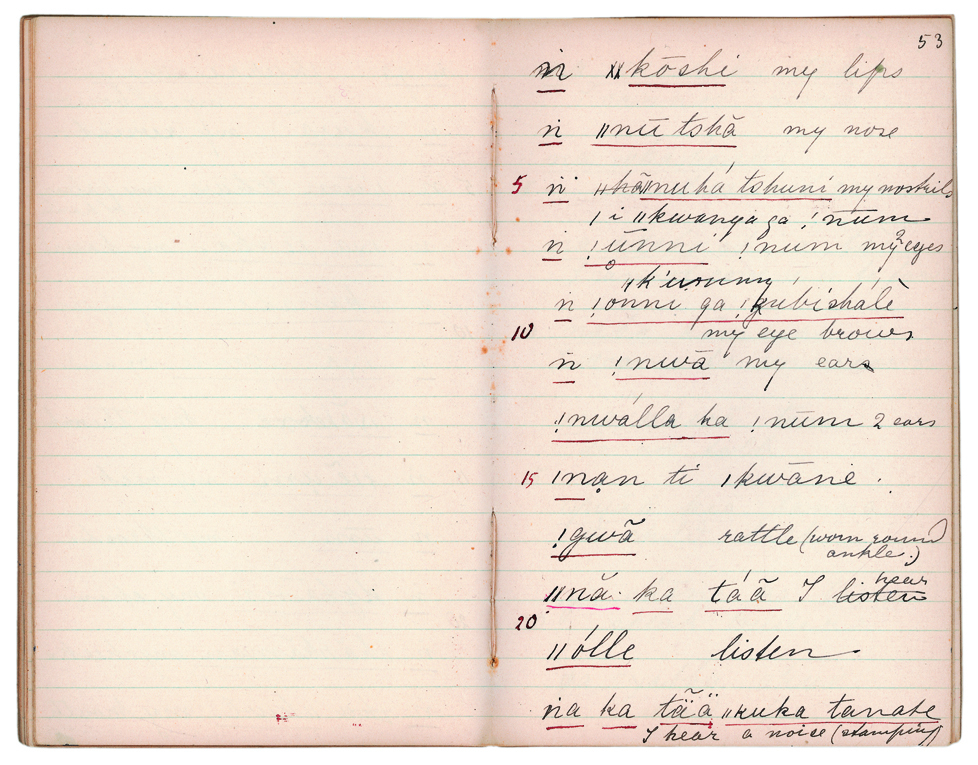 53
ṅ ǁkōshi my lips
ṅ ǁnū tshā my nose
5 ṅ ǁnuhá tshuní my nostrils
ǀ i ǁkwanya ga ǃnūm
ṅ ǃūnni ǃnūm my 2 eyes
ṅ ǃonni ga
10 my eye brows
ṅ ǃnwā my ears
ǃnwálla ka ǃnūm 2 ears
15 ǀnạn ti ǀkwāne .
ǃgwã rattle (worn round
ankle.)
hear
ǁnă ka táã I listen
20
ǁólle listen
ṅa ka tãä ǁkuka tanate
I hear a noise (stamping)